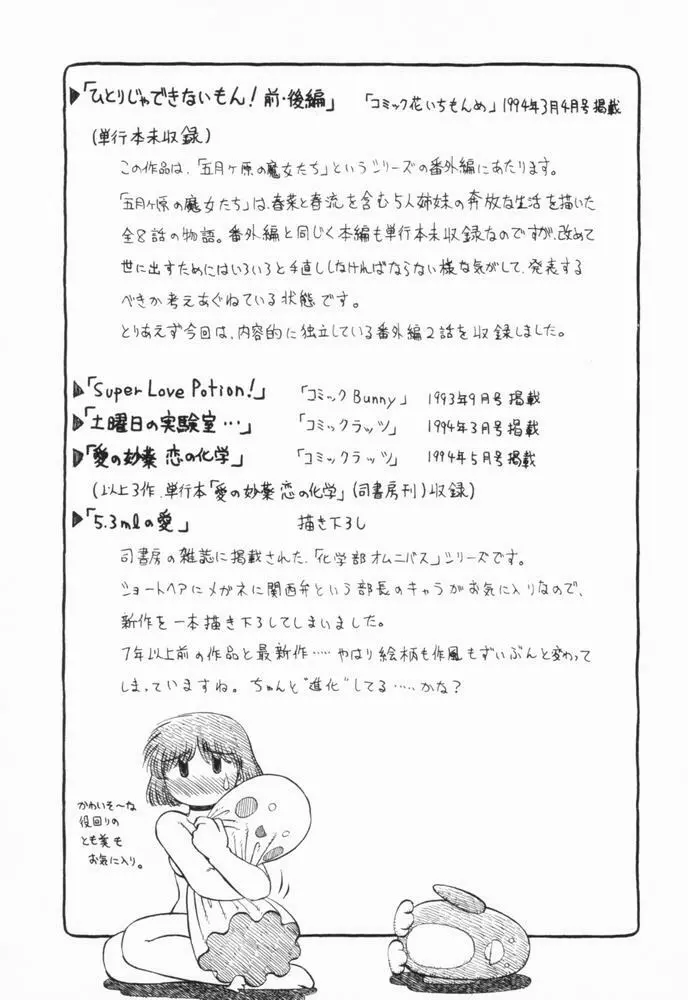 ▶「ひとりじゃできないもん! 前・後編」 「コミック花いちもんめ」1994年3月4月号掲載
(単行本未収録)
この作品は、「五月ヶ原の魔女たち」というシリーズの番外編にあたります。
「五月ヶ原の魔女たち」は、春菜と春流を含む5人姉妹の奔放な生活を描いた
全8話の物語。番外編と同じく本編も単行本未収録なのですが、改めて
世に出すためにはいろいろと手直ししなければならない様な気がして、発表する
べきか考えあぐねている状態です。
とりあえず今回は、内容的に独立している番外編2話を収録しました。
▶「Super Love Potion!」 「コミックBunny」 1993年9月号掲載
▶「土曜日の実験室…」 「コミックラッツ」 1994年3月号掲載
▶「愛の妙薬 恋の化学」 「コミックラッツ」 1994年5月号掲載
(以上3作、単行本「愛の妙薬 恋の化学」(司書房刊)収録)
▶「5.3mlの愛」 描き下ろし
司書房の雑誌に掲載された、「化学部オムニバス」シリーズです。
ショートヘアにメガネに関西弁という部長のキャラがお気に入りなので、
新作を一本描き下ろしてしまいました。
7年以上前の作品と最新作……やはり絵柄も作風もずいぶんと変わって
しまっていますね。ちゃんと"進化"してる……かな?
かわいそ〜な
役回りの
とも美も
お気に入り。